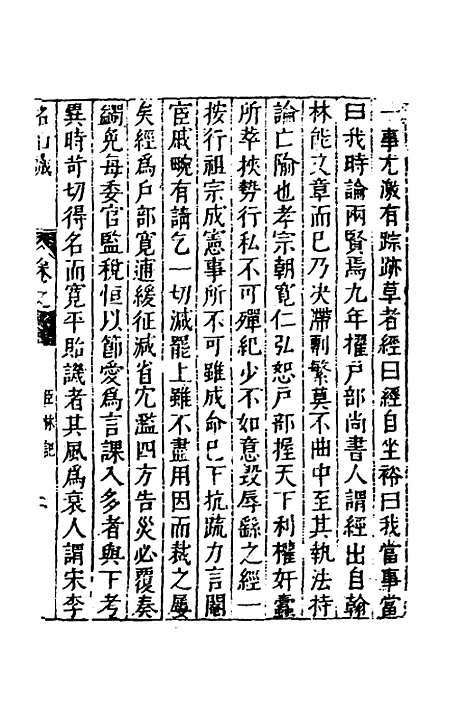 一事尤激有踪跡草者經曰經自坐裕曰我當事當
曰我時論兩賢焉九年擢戶部尚書人謂經出自翰
林能文章而已乃决滯剸繁莫不曲中至其執法持
論亡隃也孝宗朝寬仁弘恕戶部握天下利權奸蠹
所萃挾勢行私不可殫紀少不如意設辱繇之經一
按行祖宗成憲事所不可雖成命已下抗疏力言閹
宦戚畹有請乞一切減罷上雖不盡用因而裁之屢
矣經爲戶部寛逋緩征減省冗濫四方告災必覆奏
蠲免每委官監稅恒以節愛爲言課入多者與下考
異時苛切得名而寛平貽譏者其風爲衰人謂宋李
名山藏 卷之 臣林記 二